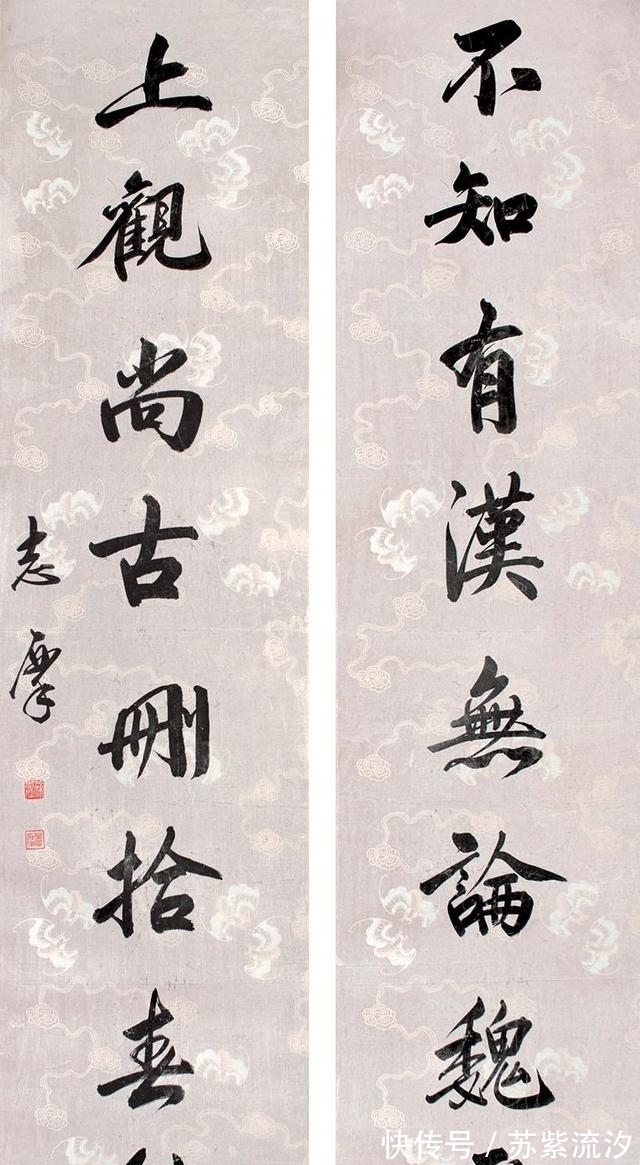 不知有漢無論魏
上觀尚古刪拾春
志摩
快传号 / 苏紫流汐